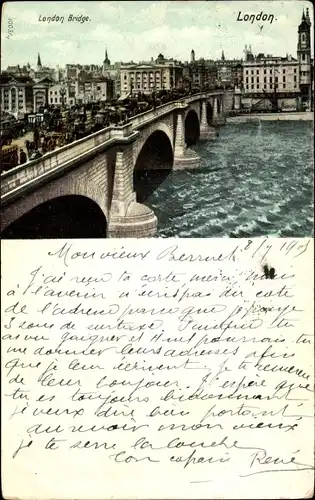 London Bridge.
London.
Mon vieux Berruet 8/7 1905
J'ai reçu ta carte merci mais
à l'avenir n'écris pas du coté
de l'adresse parce que je paye
3 sous de surtaxe. tu
as vu gagner et il pourrais tu
me donner leurs adresses afin
que je leur écrivent, je te remercie
de leur bonjour. J'espère que
tu es toujours bidonnant
je veux dire bien portant
au revoir mon vieux
je te serre la louche
Ton copain René